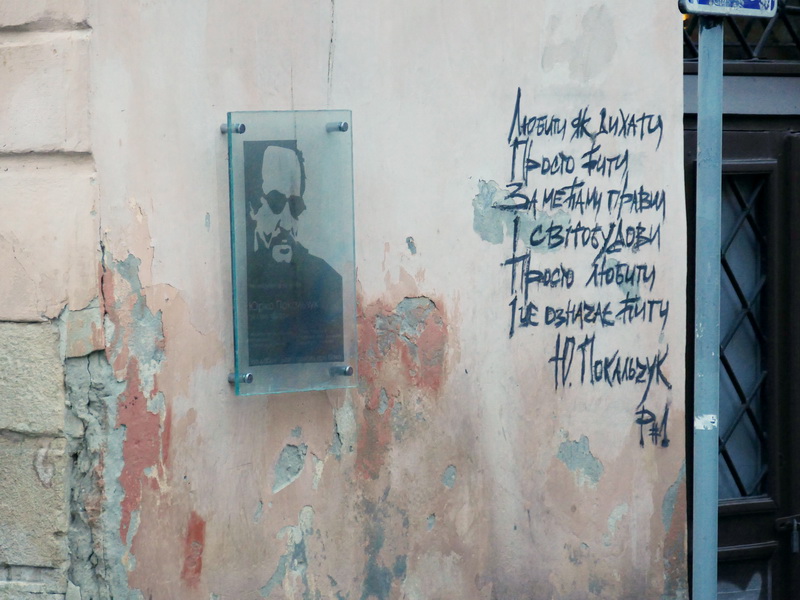 Юрко Покальчук
Любити як дихати
Просто жити
За межами правил
І світобудови
Просто любити
І це означає жити
Ю. Покальчук
Р#1